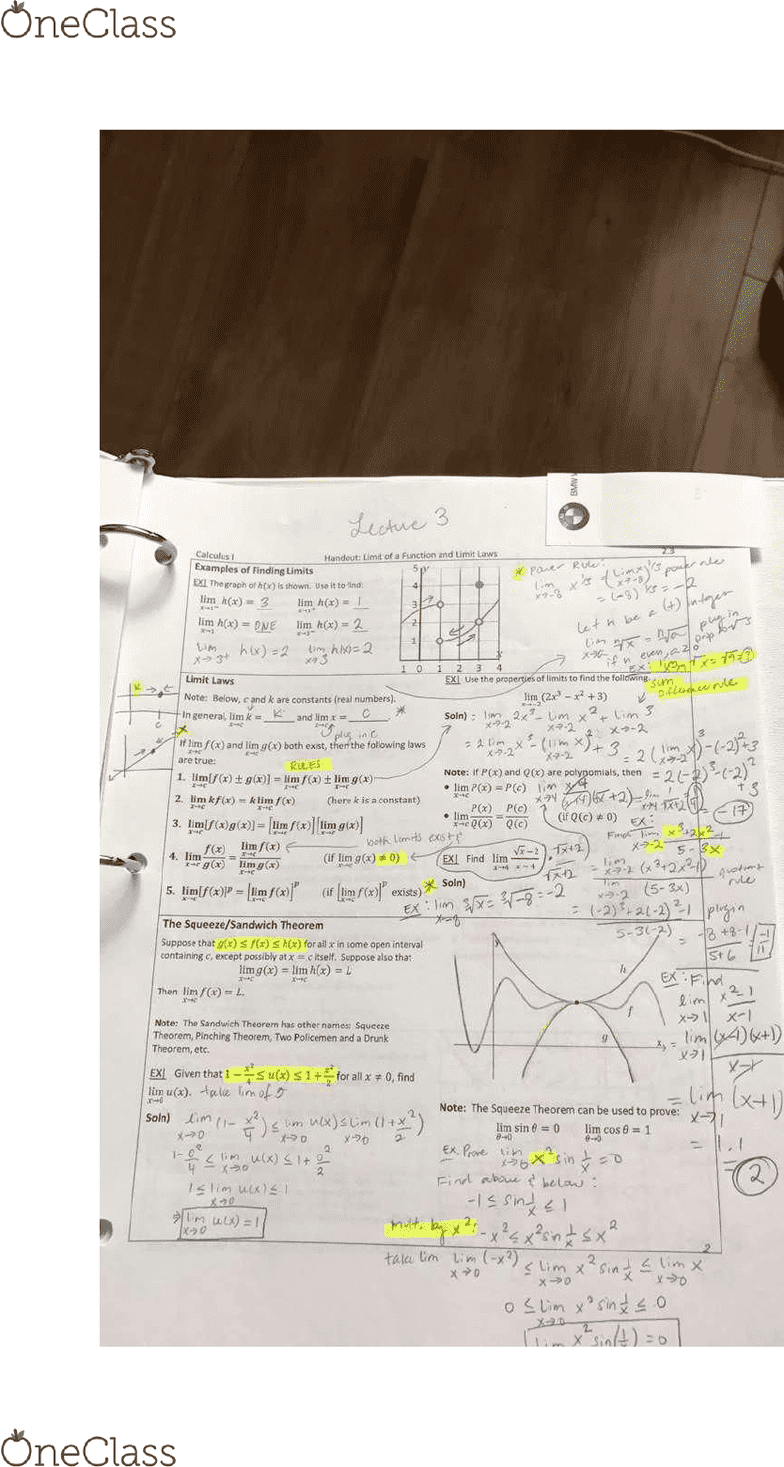 OneClass
BMW
Lecture 3
Calculus I Handout: Limit of a Function and Limit Laws 2.3
Examples of Finding Limits
EX] The graph of h(x) is shown. Use it to find:
lim x→1⁻ h(x) = 3 lim x→1⁺ h(x) = 1
lim x→1 h(x) = DNE lim x→3⁻ h(x) = 2
lim x→3⁺ h(x) = 2 lim x→3 h(x) = 2
5
4
3
2
1
1 0 1 2 3 4
* Power Rule:
lim x→-8 x^1/3 = (lim x→-8 x)^1/3 power rule
= (-8)^1/3 = -2
let n be a (+) integer
plug in
Limit Laws
Note: Below, c and k are constants (real numbers).
In general, lim x→c k = k and lim x→c x = c *
plug in c
If lim x→c f(x) and lim x→c g(x) both exist, then the following laws
are true: RULES
1. lim x→c [f(x) ± g(x)] = lim x→c f(x) ± lim x→c g(x)
2. lim x→c kf(x) = k lim x→c f(x) (here k is a constant)
3. lim x→c [f(x)g(x)] = [lim x→c f(x)][lim x→c g(x)]
both limits exist &
4. lim x→c f(x)/g(x) = lim x→c f(x) / lim x→c g(x) (if lim x→c g(x) ≠ 0)
5. lim x→c [f(x)]^p = [lim x→c f(x)]^p (if [lim x→c f(x)]^p exists) *
EX] Use the properties of limits to find the following:
sum
difference rule
lim x→-2 (2x³ − x² + 3)
Soln) : lim x→-2 2x³ - lim x→-2 x² + lim x→-2 3
= 2 lim x→-2 x³ - (lim x→-2 x)² + 3 = 2(lim x→-2 x)³ - (-2)² + 3
= 2(-2)³ - (-2)² + 3
= -17
Note: If P(x) and Q(x) are polynomials, then
• lim x→c P(x) = P(c)
• lim x→c P(x)/Q(x) = P(c)/Q(c) (if Q(c) ≠ 0)
EX] Find lim x→4 √x−2 / x−4 · √x+2 / √x+2
Soln)
EX: lim x→-8 ∛x = ∛-8 = -2
EX:
Find lim x→-2 x³+2x²-1 / 5-3x
= lim x→-2 (x³+2x²-1) / lim x→-2 (5-3x) quotient rule
= (-2)³+2(-2)²-1 / 5-3(-2) plug in
= -8+8-1 / 5+6 = -1/11
The Squeeze/Sandwich Theorem
Suppose that g(x) ≤ f(x) ≤ h(x) for all x in some open interval
containing c, except possibly at x = c itself. Suppose also that:
lim x→c g(x) = lim x→c h(x) = L
Then lim x→c f(x) = L.
Note: The Sandwich Theorem has other names: Squeeze
Theorem, Pinching Theorem, Two Policemen and a Drunk
Theorem, etc.
EX] Given that 1 − x²/4 ≤ u(x) ≤ 1 + x²/2 for all x ≠ 0, find
lim x→0 u(x). take lim of 5
Soln) lim x→0 (1 - x²/4) ≤ lim x→0 u(x) ≤ lim x→0 (1+x²/2)
1 - 0²/4 ≤ lim x→0 u(x) ≤ 1 + 0²/2
1 ≤ lim x→0 u(x) ≤ 1
⇒ lim x→0 u(x) = 1
y
h
f
g
x
EX: Find
lim x→1 x²-1 / x-1
= lim x→1 (x-1)(x+1) / x-1
= lim x→1 (x+1)
= 1+1
= 2
Note: The Squeeze Theorem can be used to prove:
lim θ→0 sin θ = 0 lim θ→0 cos θ = 1
Ex. Prove lim x→0 x² sin 1/x = 0
Find above & below:
-1 ≤ sin 1/x ≤ 1
mult. by x²: -x² ≤ x² sin 1/x ≤ x²
2
take lim lim x→0 (-x²) ≤ lim x→0 x² sin 1/x ≤ lim x→0 x
0 ≤ lim x→0 x² sin 1/x ≤ 0
lim x² sin(1/x) = 0
OneClass